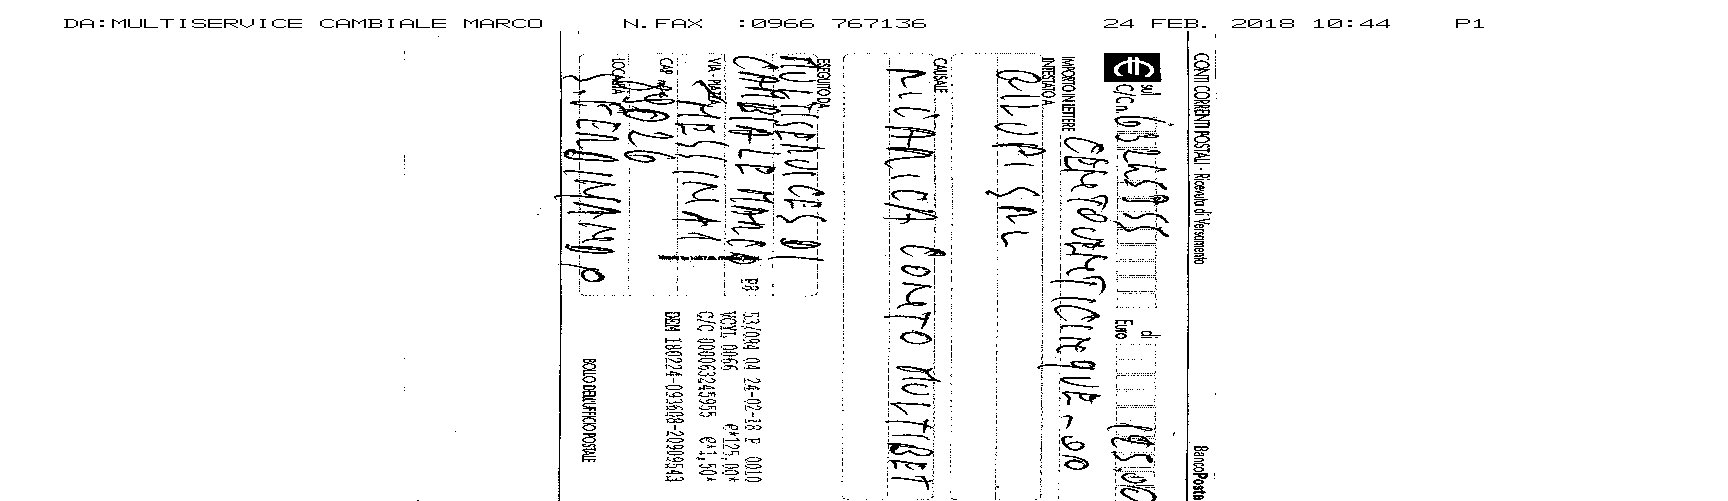 DA:MULTISERVICE CAMBIALE MARCO N.FAX :0966 767136 24 FEB. 2018 10:44 P1
CONTI CORRENTI POSTALI - Ricevuta di Versamento BancoPosta
sul C/C n. 63245955 di Euro 125,00
IMPORTO IN LETTERE CENTOVENTICINQUE-00
INTESTATO A
BILUPI SRL
CAUSALE
RICARICA CONTO MULTIBET
ESEGUITO DA
MULTISERVICES DI
CAMBIALE MARCO
VIA - PIAZZA MESSINA 1
CAP 89026
LOCALITÀ S. FERDINANDO
53/094 04 24-02-18 P 0010
VCYL 0066 €*125,00*
C/C 000063245955 €*1,50*
BOLLO DELL'UFFICIO POSTALE